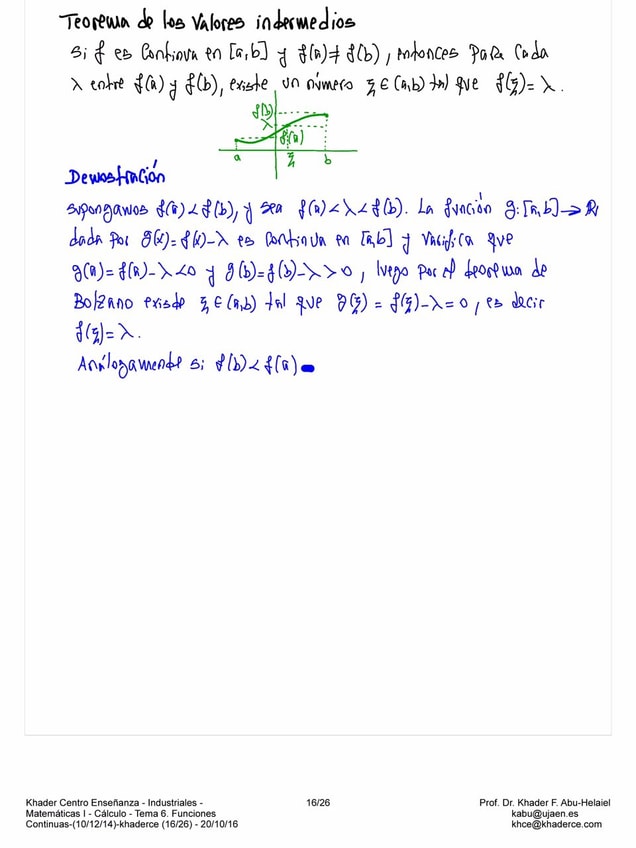 Teorema de los Valores intermedios
Si f es continua en [a,b] y f(a)≠f(b), entonces para cada
λ entre f(a) y f(b), existe un número ξ∈(a,b) tal que f(ξ)=λ.
f(b)
λ
f(a)
a ξ b
Demostración
Supongamos f(a)<f(b), y sea f(a)<λ<f(b). La función g:[a,b]→ℝ
dada por g(x)=f(x)-λ es continua en [a,b] y verifica que
g(a)=f(a)-λ<0 y g(b)=f(b)-λ>0, luego por el teorema de
Bolzano existe ξ∈(a,b) tal que g(ξ)=f(ξ)-λ=0, es decir
f(ξ)=λ.
Análogamente si f(b)<f(a)
Khader Centro Enseñanza - Industriales -
Matemáticas I - Cálculo - Tema 6. Funciones
Continuas-(10/12/14)-khaderce (16/26) - 20/10/16
16/26
Prof. Dr. Khader F. Abu-Helaiel
kabu@ujaen.es
khce@khaderce.com